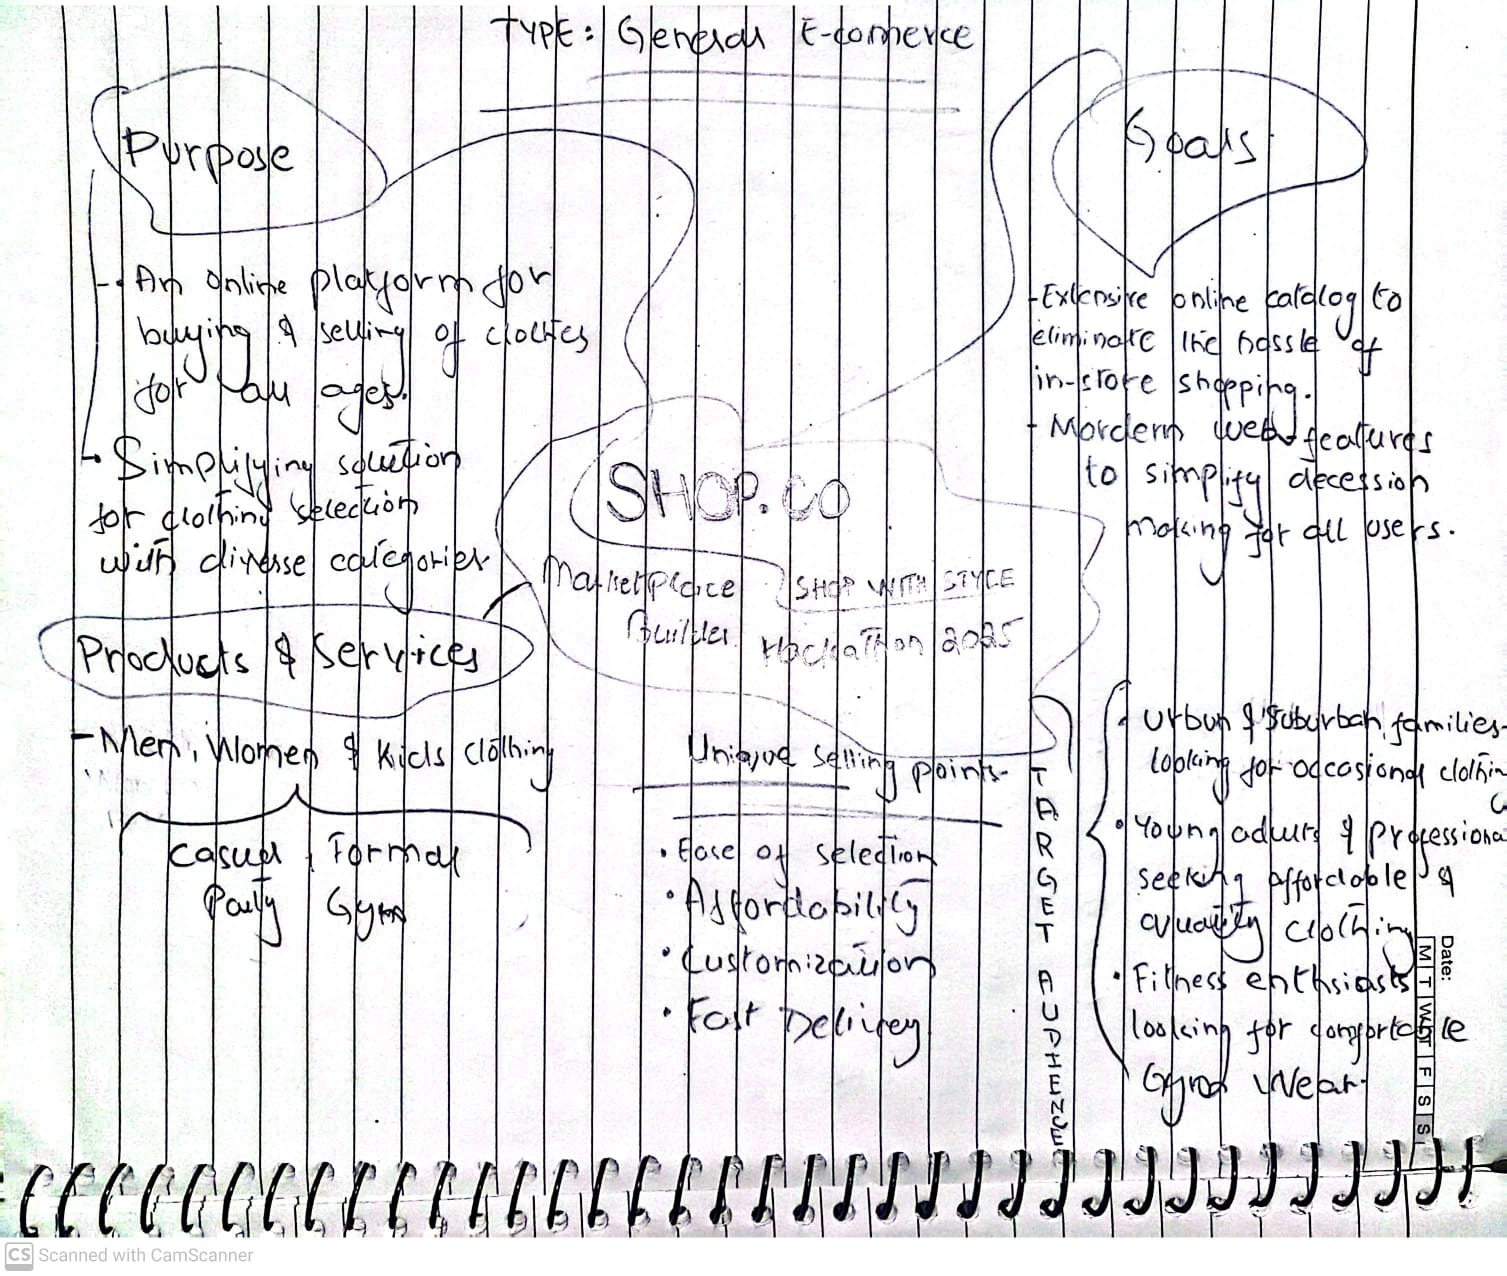 TYPE: General E-comerce
Purpose
- An online platform for
buying & selling of clothes
for all ages.
Simplifying solution
for clothing selection
with diverse categories
Goals
- Extensive online catalog to
eliminate the hassle of
in-store shopping.
- Mordern web features
to simplify decession
making for all users.
SHOP.CO
Marketplace
Builder
SHOP WITH STYLE
Hackathon 2025
Products & Services
- Men, Women & Kids clothing
Casual, Formal
Party Gym
Unique selling points
• Ease of selection
• Affordability
• Customization
• Fast Delivery
TARGET AUDIENCE
• Urban & Suburban families
looking for occasional clothin
• Young adults & professiona
seeking affordable &
quality clothing
• Fitness enthsiasts
looking for comfortable
Gym Wear
Date:
M T W T F S S
CS Scanned with CamScanner